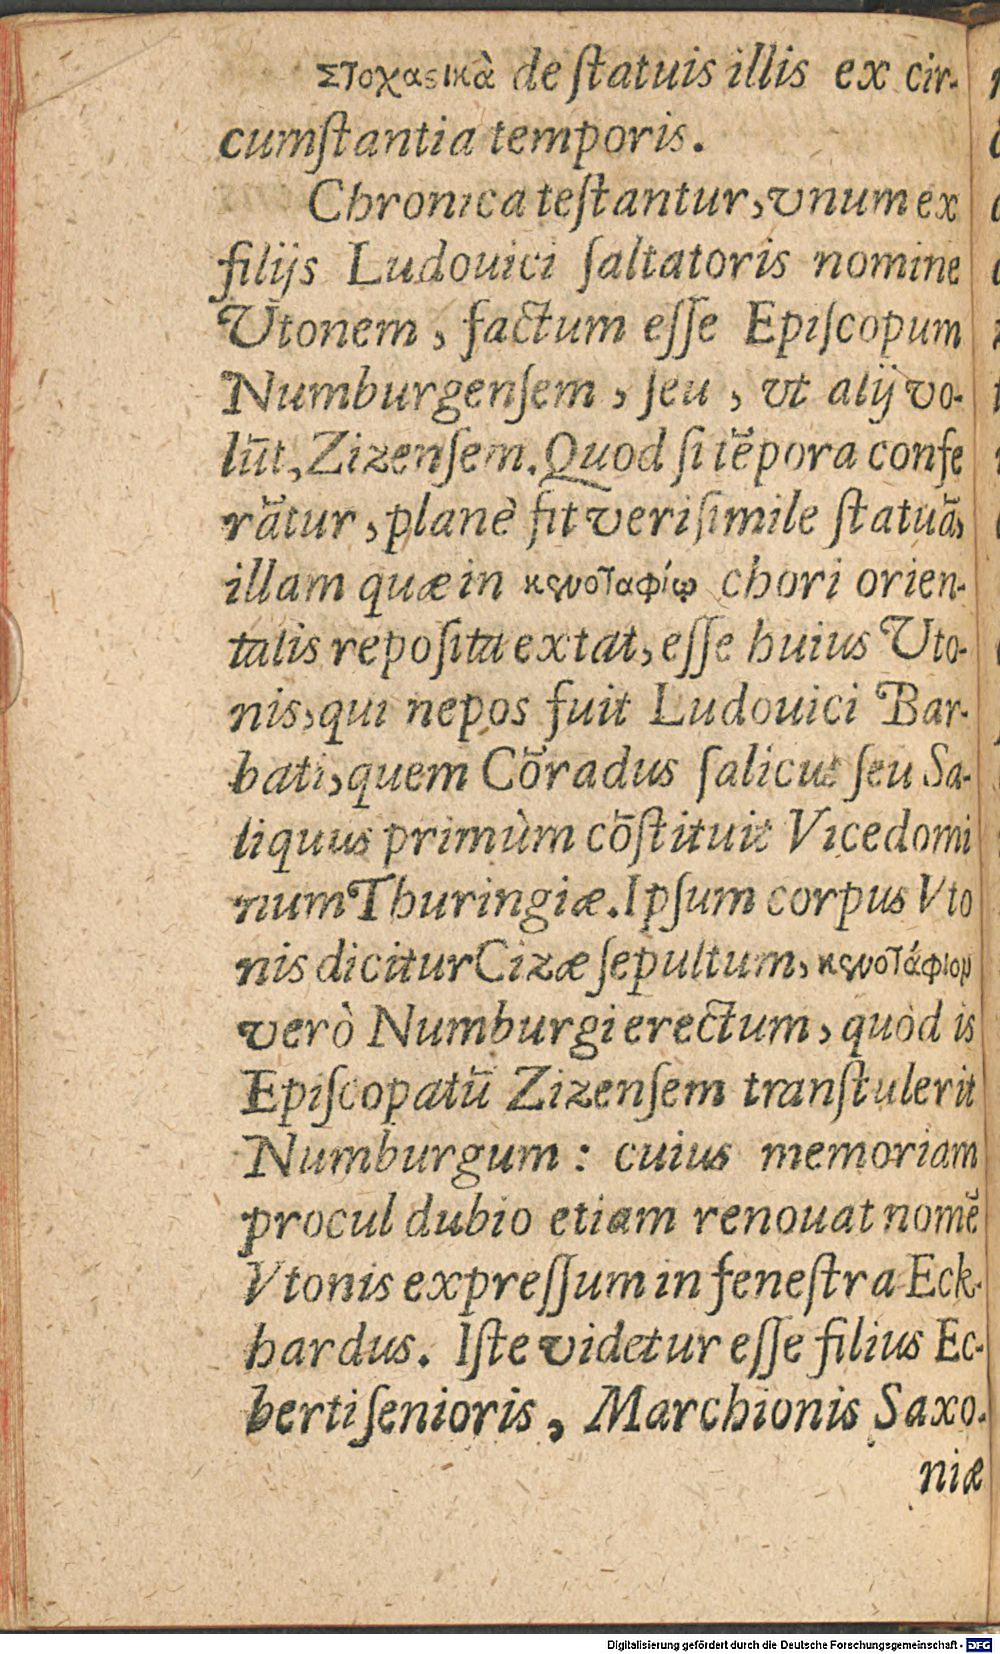 Στοχαστικὰ de ſtatuis illis ex cir-
cumſtantia temporis.
Chronica teſtantur, vnum ex
filijs Ludouici ſaltatoris nomine
Utonem, factum eſſe Epiſcopum
Numburgenſem, ſeu, vt alij vo-
lūt, Zizenſem. Quod ſi tẽpora confe
rãtur, planè fit veriſimile ſtatuã,
illam quæ in κενοταφίῳ chori orien-
talis repoſita extat, eſſe huius Uto-
nis, qui nepos fuit Ludouici Bar-
bati, quem Cõradus ſalicus ſeu Sa-
liquus primùm cõſtituit Vicedomi
num Thuringiæ. Ipſum corpus Vto
nis dicitur Cizæ ſepultum, κενοτάφιον
verò Numburgi erectum, quòd is
Epiſcopatū Zizenſem tranſtulerit
Numburgum: cuius memoriam
procul dubio etiam renouat nomẽ
Vtonis expreſſum in feneſtra Eck-
hardus. Iſte videtur eſſe filius Ec-
berti ſenioris, Marchionis Saxo-
niæ
Digitalisierung gefördert durch die Deutsche Forschungsgemeinschaft - DFG